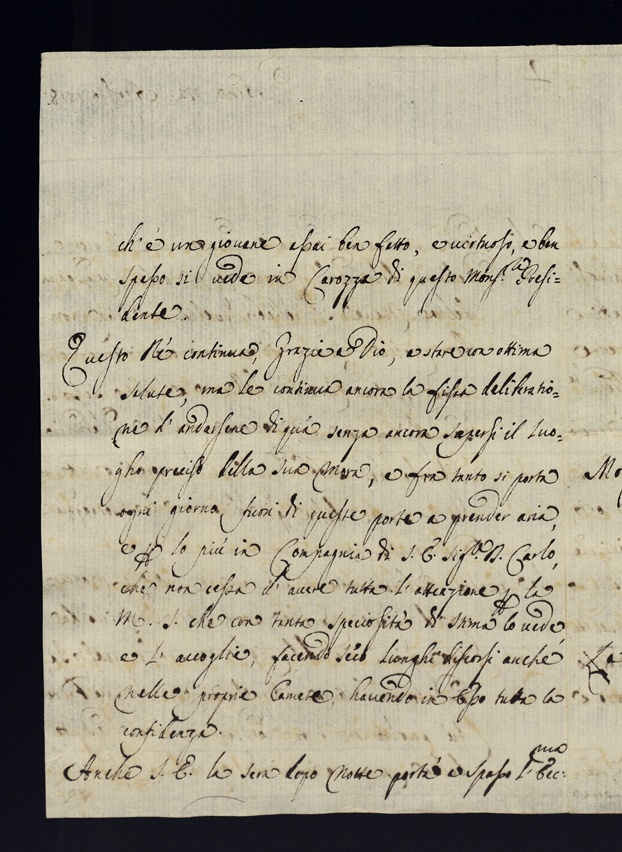 ch' è un giovane assai ben fatto, e virtuoso, e ben
spesso si vede in Carozza di questo Mons.r Presi=
dente.
Questo Rè continua, Grazie a Dio, a stare con ottima
salute, ma le continua ancora la fissa deliberatio=
ne d' andarsene di quà senza ancora sapersi il Luo=
gho preciso della sua Mora, e fra tanto si porta
ogni giorno fuori di queste porte a prender aria,
e lo più in Compagnia di S. E. Sig.r D. Carlo,
che non cessa d' avere tutta l' attenzione la
M. S. che con tanta speciosità di stima lo vede,
e l' accoglie, facendo seco Lunghi discorsi anche
nelle proprie Camere, havendo in Esso tutta la
confidenza.
Anche S. E. la sera dopo notte porta e spesso l' Ecc:ma